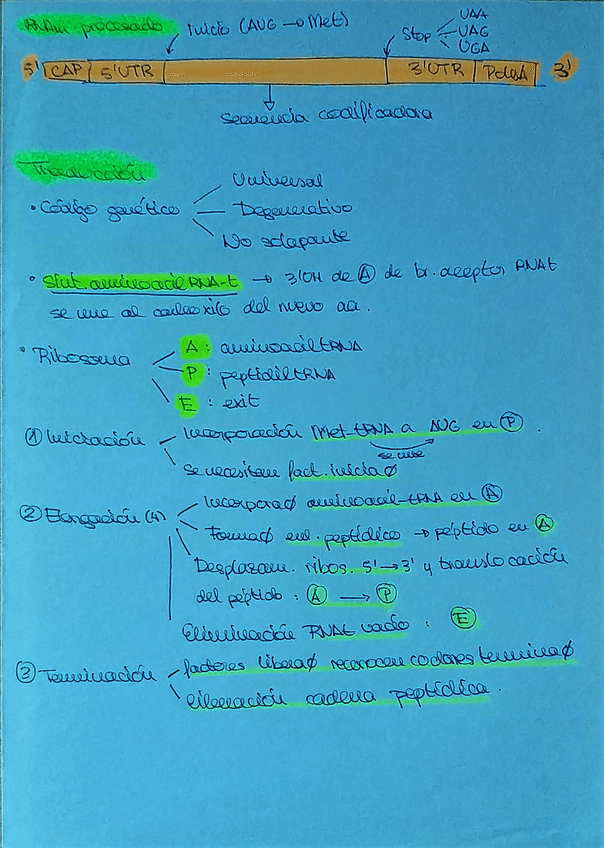 RNAm procesado
Inicio (AUG → Met)
Stop
UAA
UAG
UGA
5' CAP 5'UTR 3'UTR PolyA 3'
secuencia codificadora
Traducción
• Código genético
Universal
Degenerativo
No solapante
• Sínt. aminoacil RNA-t → 3'OH de A de br. aceptor RNAt
se une al carboxilo del nuevo aa.
• Ribosoma
A : aminoacil tRNA
P : peptidil tRNA
E : exit
① Iniciación
Incorporación Met-tRNA a AUG en P .
se une
Se necesitan fact. iniciaø
② Elongación (4)
Incorporaø aminoacil-tRNA en A
Formaø enl. peptídico → péptido en A
Desplazam. ribos. 5'→3' y translocación
del péptido : A → P
Eliminación RNAt vacío : E
③ Terminación
factores liberaø reconocen codones terminaø
liberación cadena peptídica.